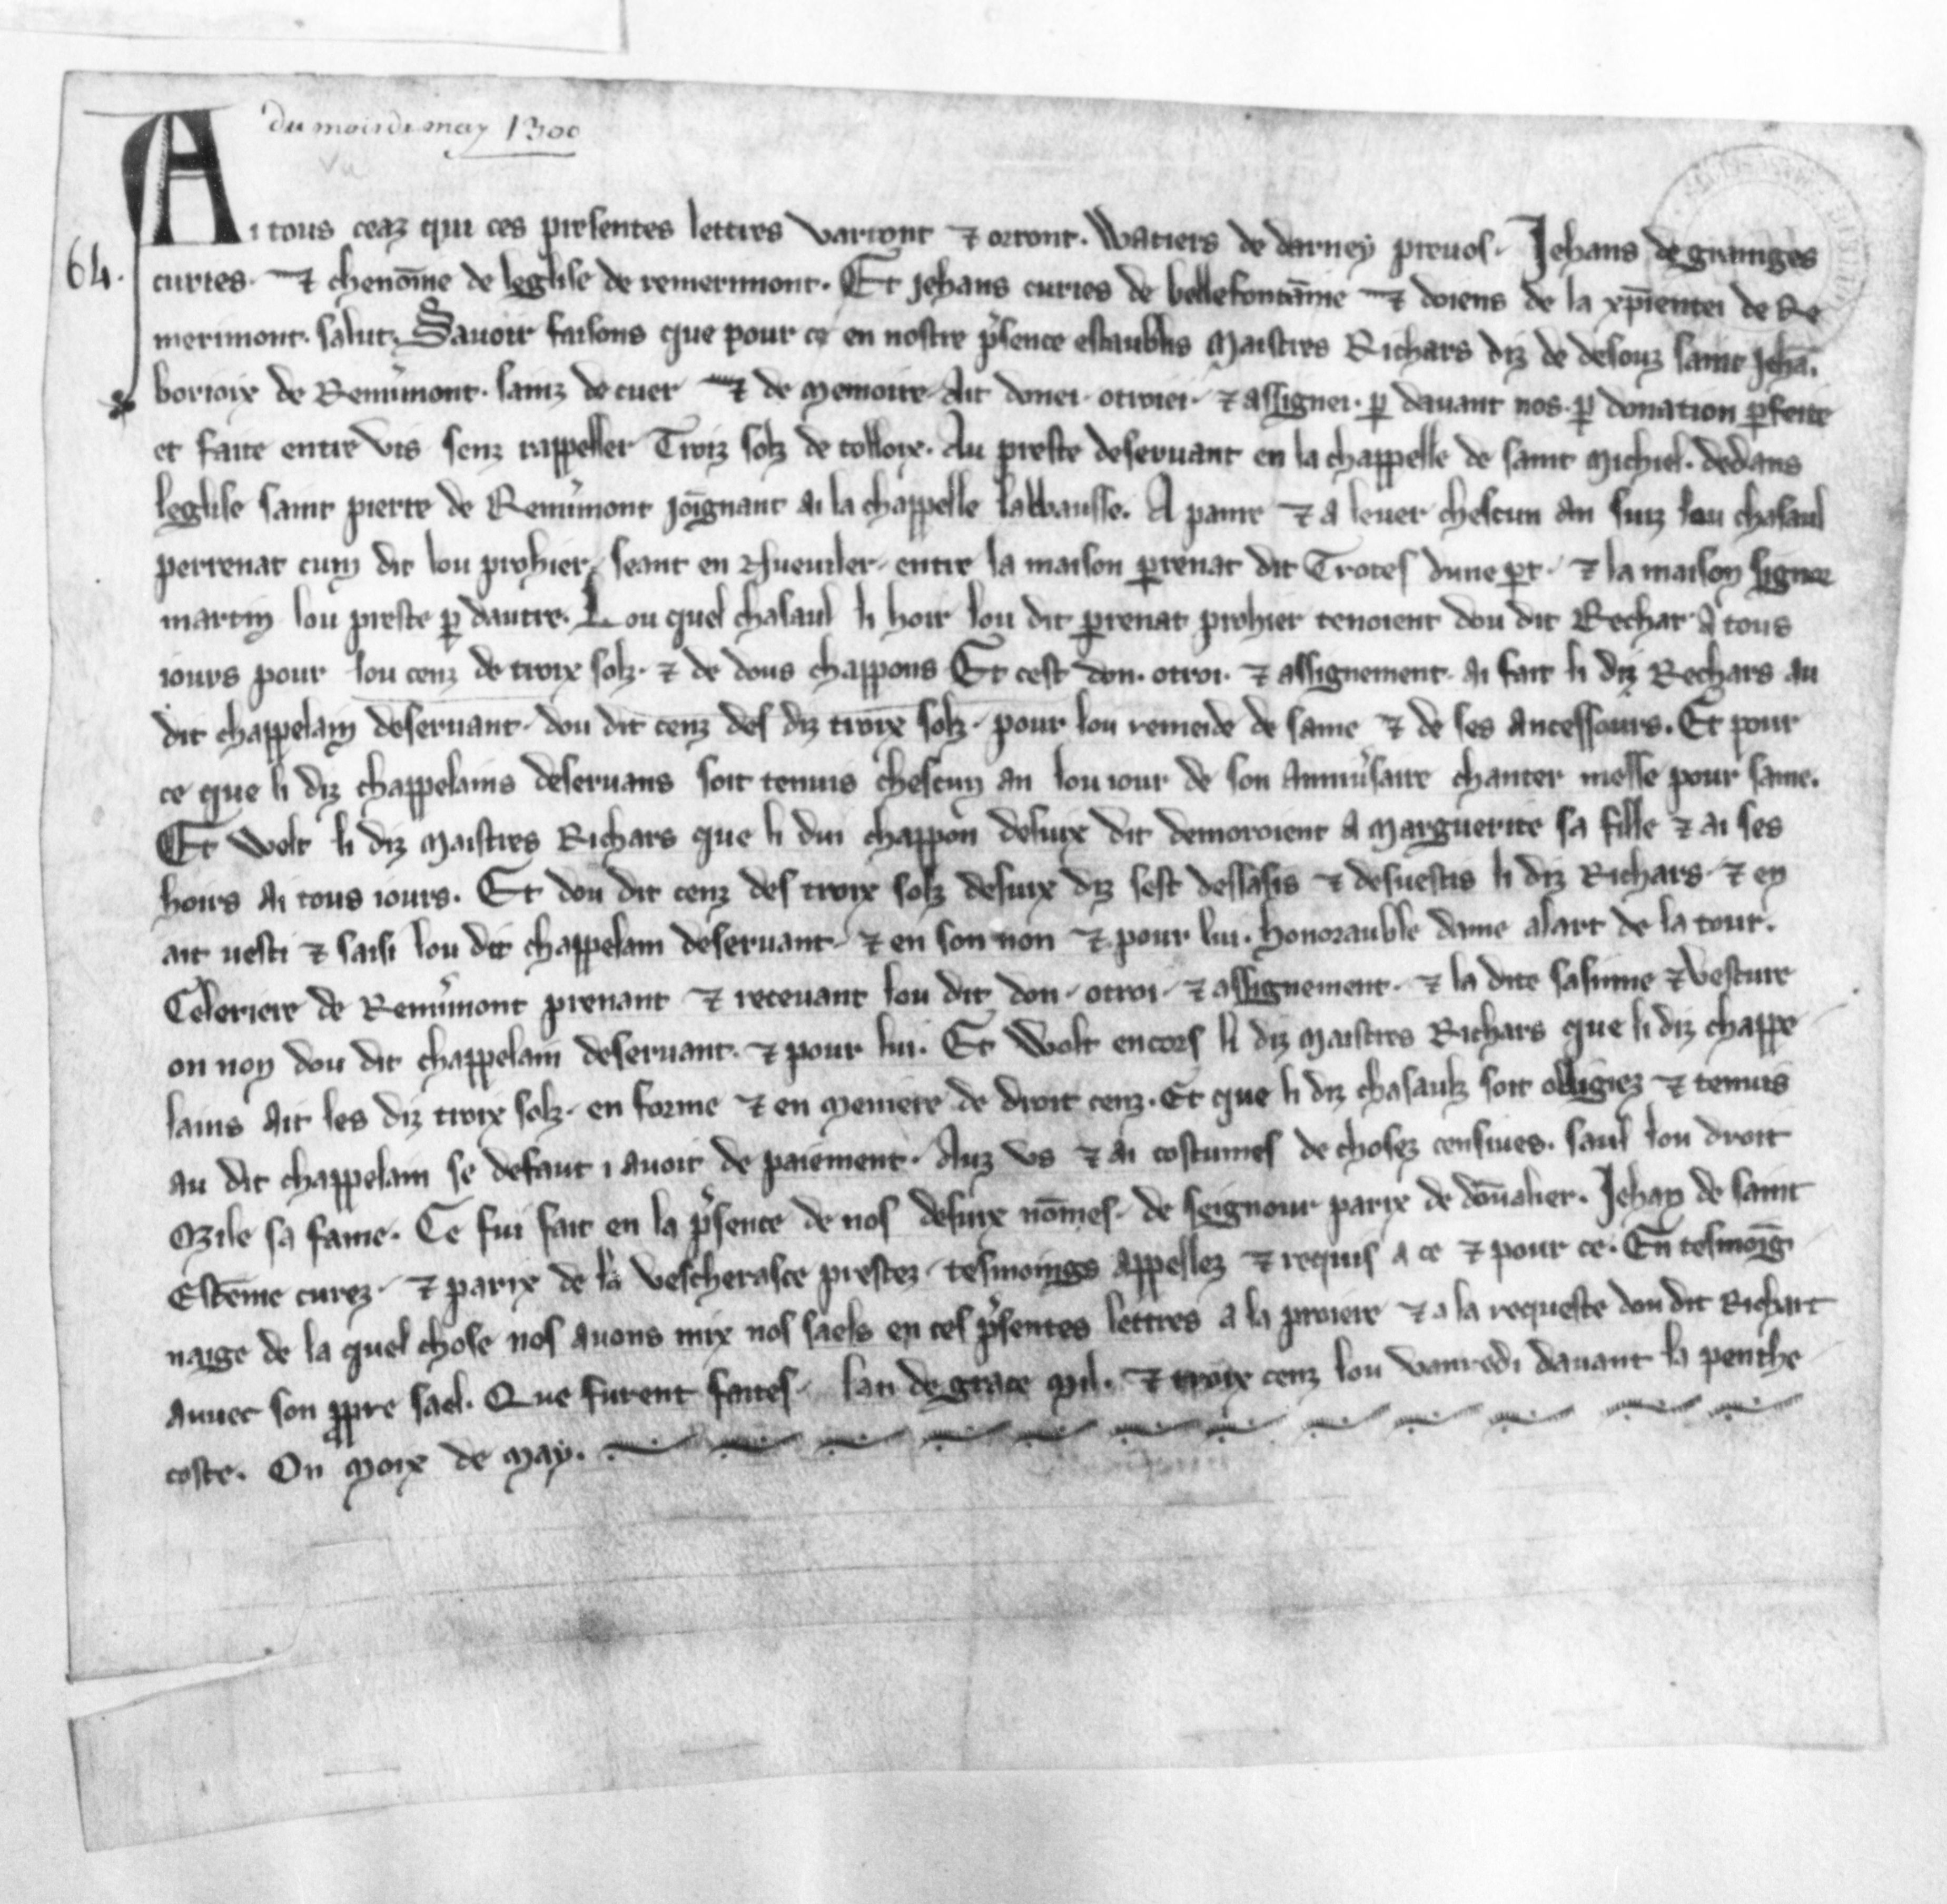 du mois de may 1300
Vu
64.
Ai tous ceaz qui ces presentes lettres varront ⁊ orront. Watiers de darney preuos. Jehans de granges
curies. ⁊ chenōine de leglise de remerimont. Et jehans curies de bellefontāine ⁊ doiens de la xp̄ientei de Re
merimont. salut. Sauoir faisons que pour ce en nostre p̓sence estaublis Maistres Richars diz de desouz saint Jehā.
borioix de Remi̓mont. sainz de cuer ⁊ de memoire. Ait donei. otroiei. ⁊ assignei. ꝑ dauant nos. ꝑ donation ꝑfeite
et faite entre vis senz rappeller Troiz solz de tolloix. Au prestre deseruant en la chappelle de saint Michiel. dedans
leglise saint pierre de Remi̓mont joīgnant ai la chappelle labbausse. A panre ⁊ a leuer chescun an suiz lou chasaul
perrenat cum dit lou prohier, seant en Rueuiler. entre la maison ꝑrenat dit Trotes dune ꝑt. ⁊ la maison signor
martin lou prestre ꝑ dautre. Lou quel chasaul li hoir lou dit ꝑrenat prohier tenoient dou dit Rechar A tous
iours pour lou cenz de troix solz. ⁊ de dous chappons Et cest don. otroi. ⁊ assignement. ai fait li diz Rechars au
dit chappelain deseruant. dou dit cenz des diz troix solz. pour lou remeide de same ⁊ de ses ancessours. Et pour
ce que li diz chappelains deseruans soit tenuis chescun an lou iour de son anniu̓saire chanter messe pour same.
Et wolt li diz Maistres Richars que li dui chappon desuix dit demoroient a Marguerite sa fille ⁊ ai ses
hoirs Ai tous iours. Et dou dit cenz des troix solz desuix diz sest dessasis ⁊ desuestis li diz Richars. ⁊ en
ait uesti ⁊ saisi lou dit chappelain deseruant. ⁊ en son non ⁊ pour lui. honorauble dame alart de la tour.
Celeriere de Remi̓mont prenant ⁊ receuant lou dit don. otroi. ⁊ assignement. ⁊ la dite sasinne ⁊ vesture
on non dou dit chappelain deseruant. ⁊ pour lui. Et Wolt encors li diz Maistres Richars que li diz chappe
lains Ait les diz troix solz. en forme ⁊ en meniere de droit cenz. Et que li diz chasaulz soit obligiez ⁊ tenuis
au dit chappelain se defaut i auoit de paiement. Auz us ⁊ ai costumes de chosez censiues. saul lou droit
Ozile sa fame. Ce fui fait en la p̓sence de nos desuix nōmes. de seignour parix de dōualier. Jehan de saint
Estēine curez. ⁊ parix de la vescherasce prestez. tesmoings appellez ⁊ requis a ce ⁊ pour ce. En tesmoīg
naige de la quel chose nos auons mix nos saels en ces p̓sentes lettres a la proiere ⁊ a la requeste dou dit Richart
auuec son ꝓpre sael. Que furent faites. lan de grace mil. ⁊ troix cenz lou vanredi dauant la penthe
coste. On moix de may.